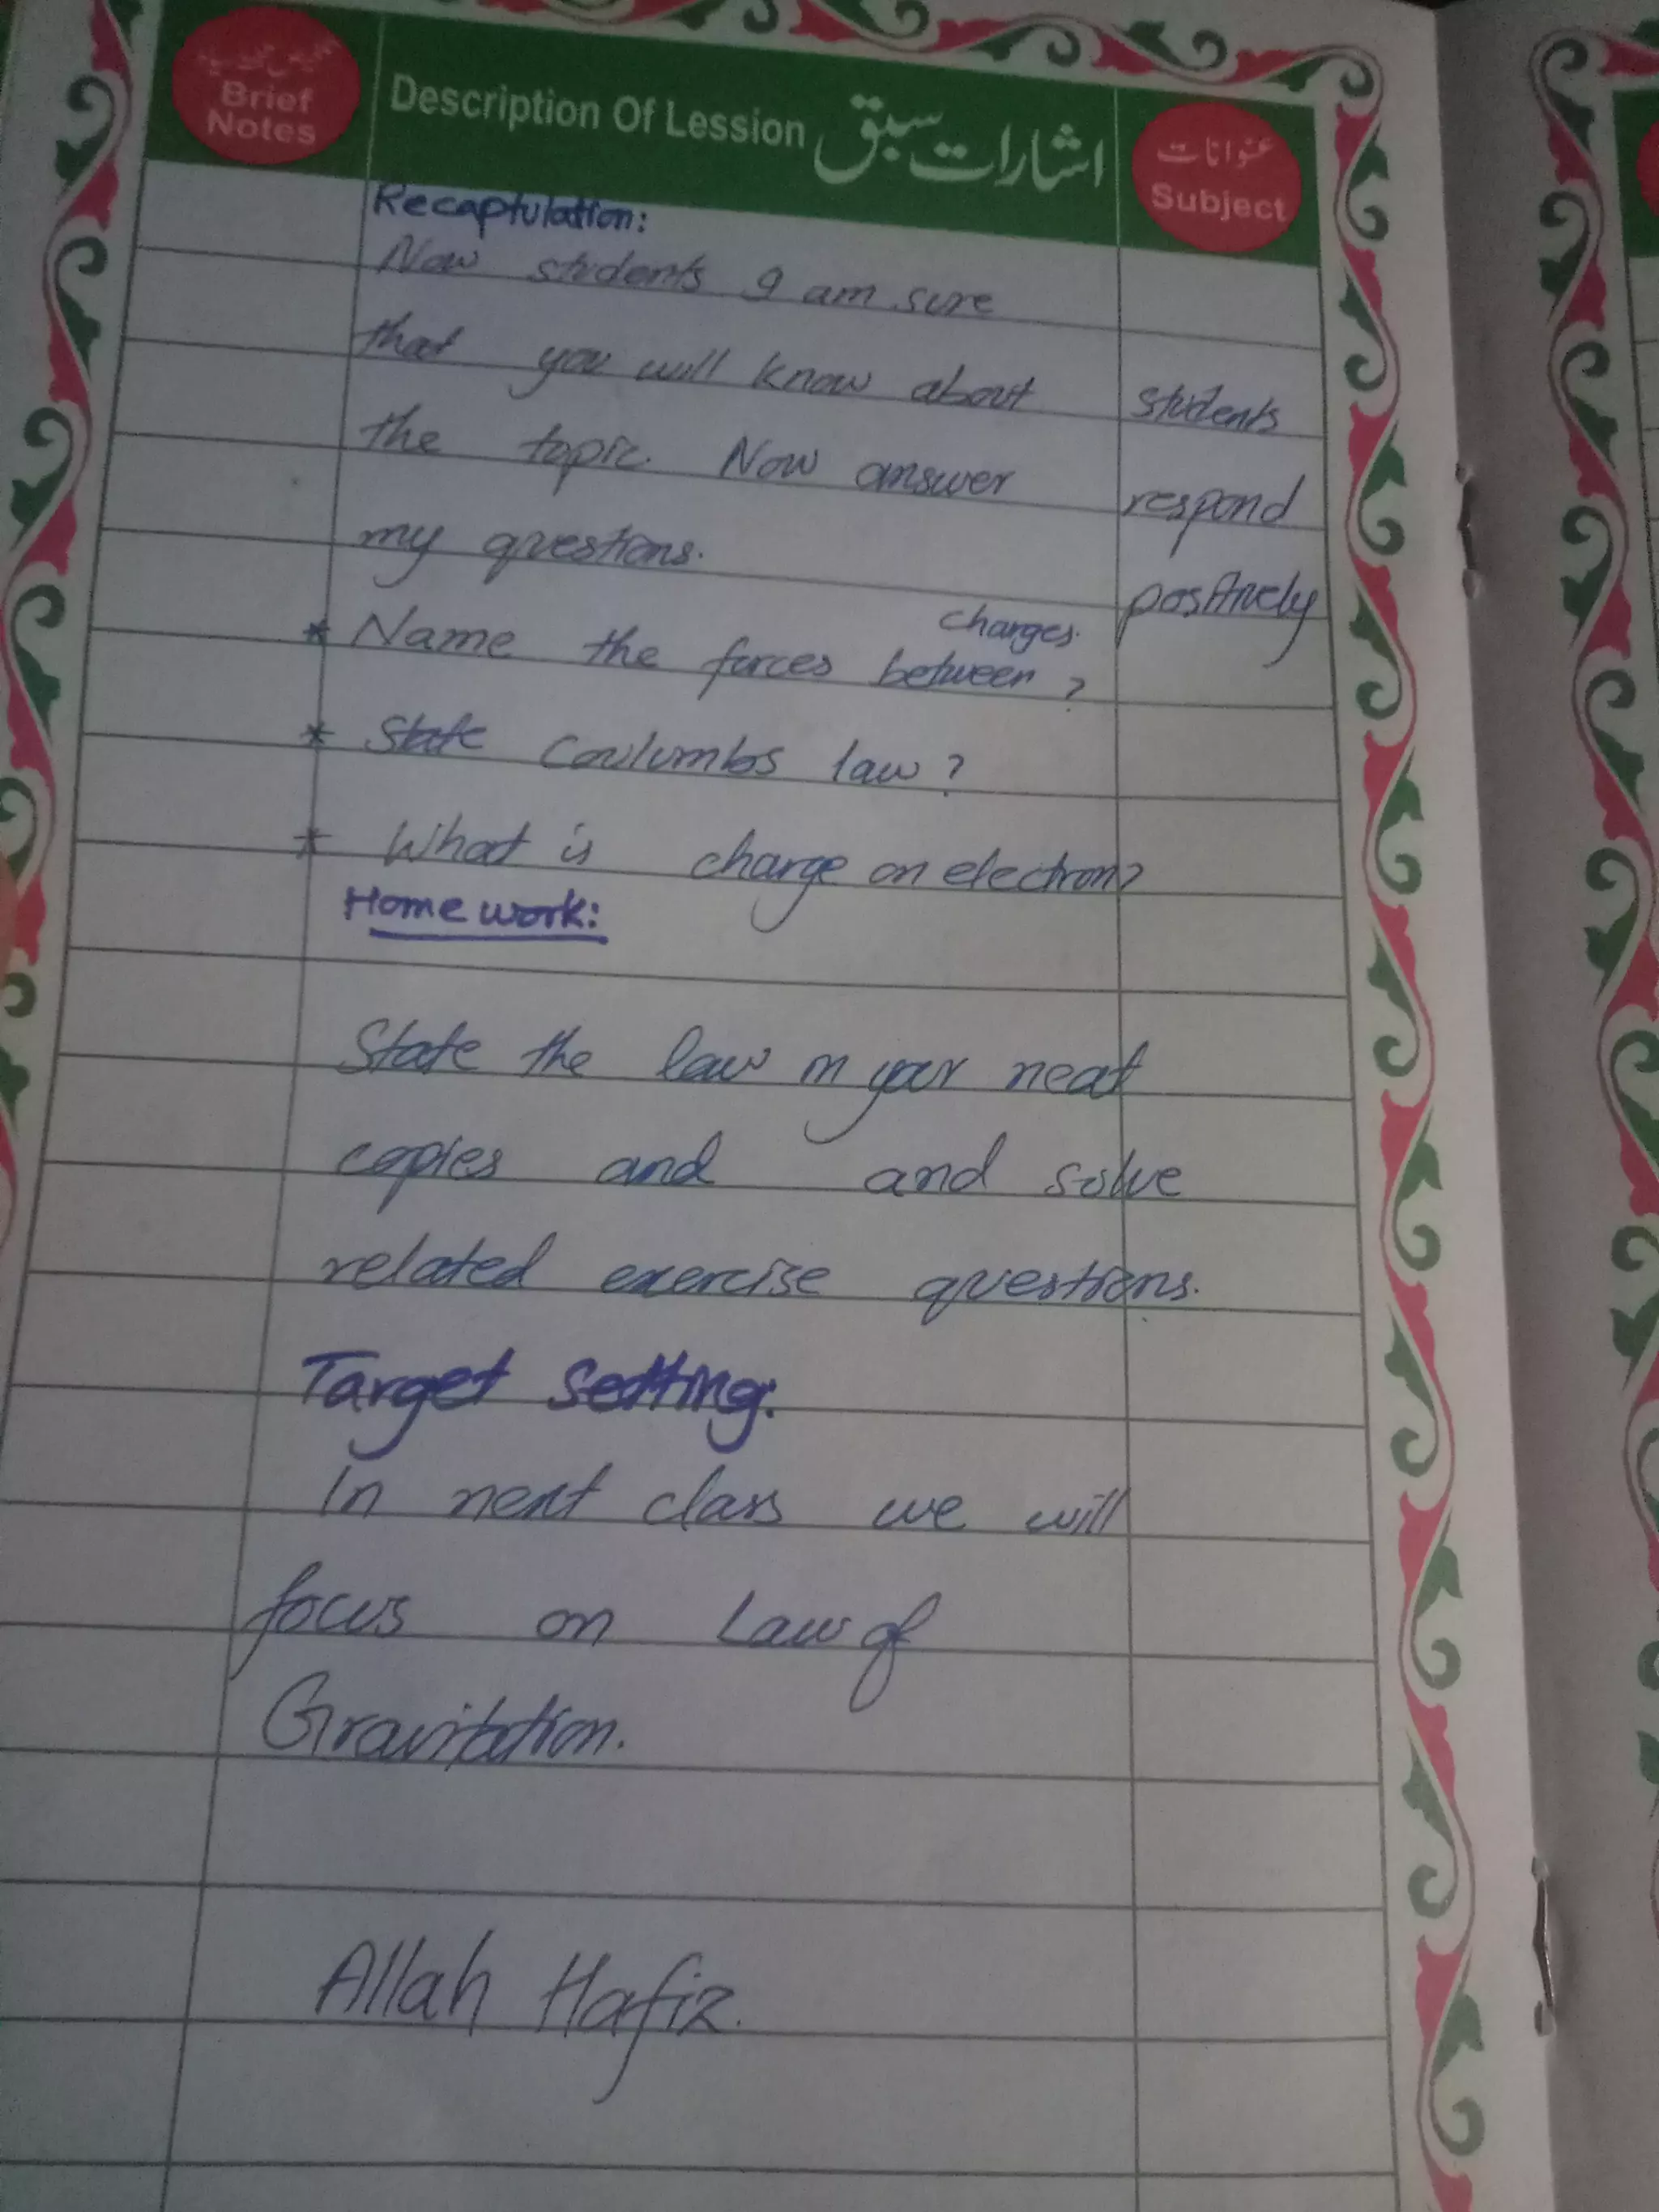 Brief
Notes
Description Of Lession اشارات سبق
عنوانات
Subject
Recaptulation:
Now students I am sure
that you will know about
students
the topic. Now answer
respond
my questions.
positively
* Name the forces between charges. ?
* State Coulumbs law ?
* What is charge on electron?
Home work:
State the law in your neat
copies and and solve
related exercise questions.
Target setting:
In next class we will
focus on Law of
Gravitation.
Allah Hafiz.